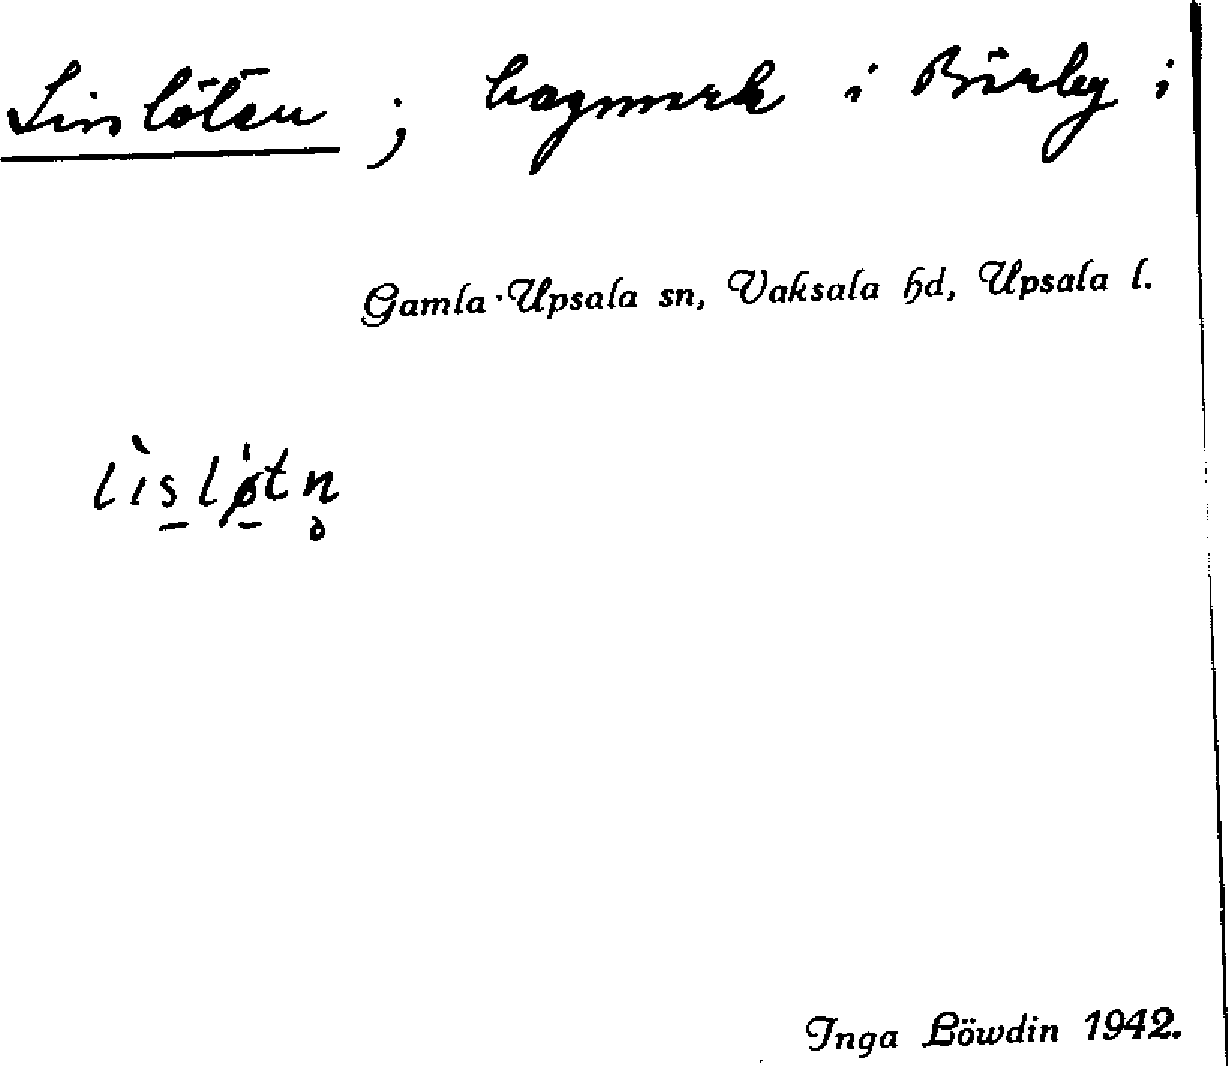 Linlöten ; hagmark i Bärby i
Gamla-Upsala sn, Vaksala hd, Upsala l.
lìsløtn̥
Inga Löwdin 1942.